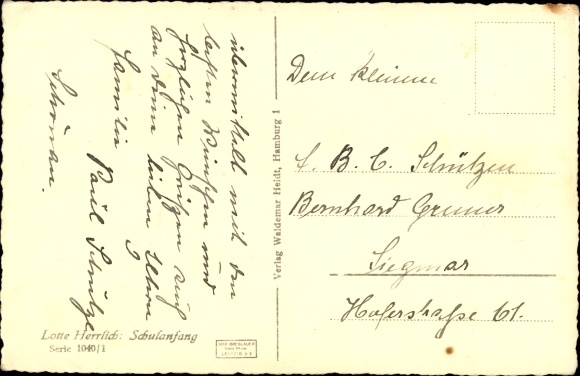 übermittelt mit den
besten Wünschen und
herzlichen Grüßen auch
an Deine lieben Eltern
Familie
Paul Schulze
Schönau.
Dem kleinen
A. B. C. Schützen
Bernhard Gruner
Siegmar
Hoferstraße 61.
Verlag Waldemar Heidt, Hamburg 1
Lotte Herrlich: Schulanfang
Serie 1040/1
MAX BRESLAUER
LEIPZIG